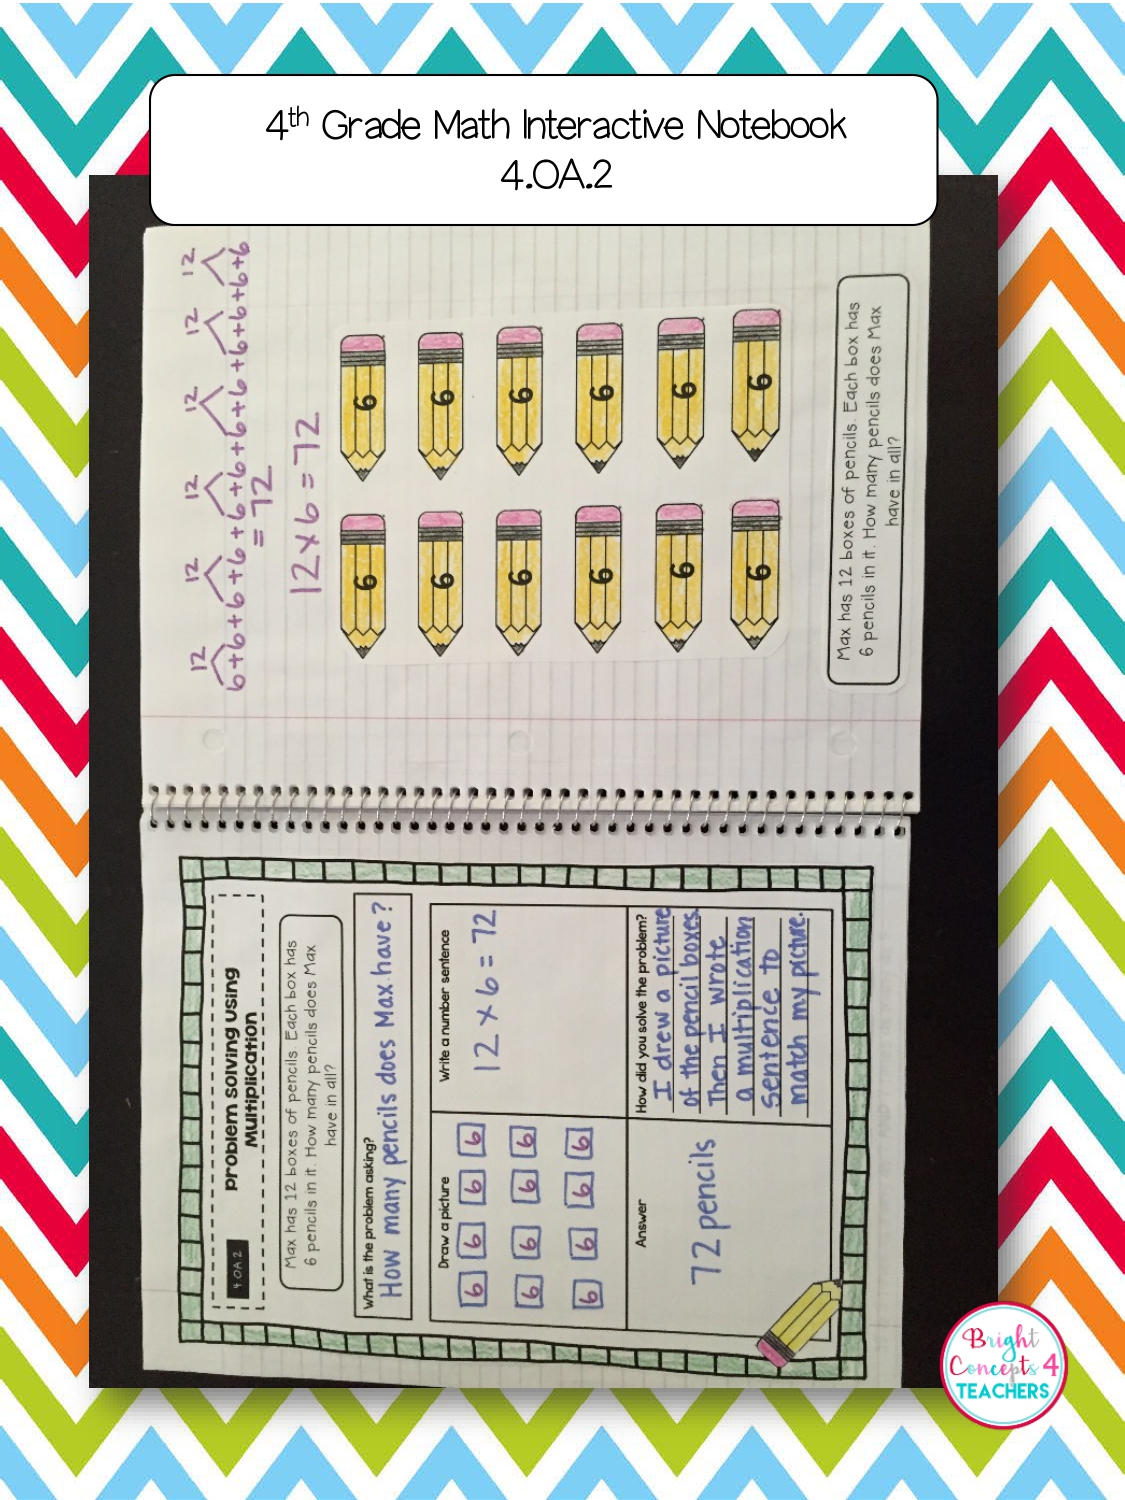 4th Grade Math Interactive Notebook
4.OA.2
4.OA.2
problem solving using
Multiplication
Max has 12 boxes of pencils. Each box has
6 pencils in it. How many pencils does Max
have in all?
What is the problem asking?
How many pencils does Max have?
Draw a picture
6 6 6 6
6 6 6 6
6 6 6 6
Write a number sentence
12 x 6 = 72
Answer
72 pencils
How did you solve the problem?
I drew a picture
of the pencil boxes.
Then I wrote
a multiplication
sentence to
match my picture.
12 12 12 12 12 12
6+6+6+6+6+6+6+6+6+6+6+6
= 72
12 x 6 = 72
6 6
6 6
6 6
6 6
6 6
6 6
Max has 12 boxes of pencils. Each box has
6 pencils in it. How many pencils does Max
have in all?
Bright
Concepts 4
TEACHERS